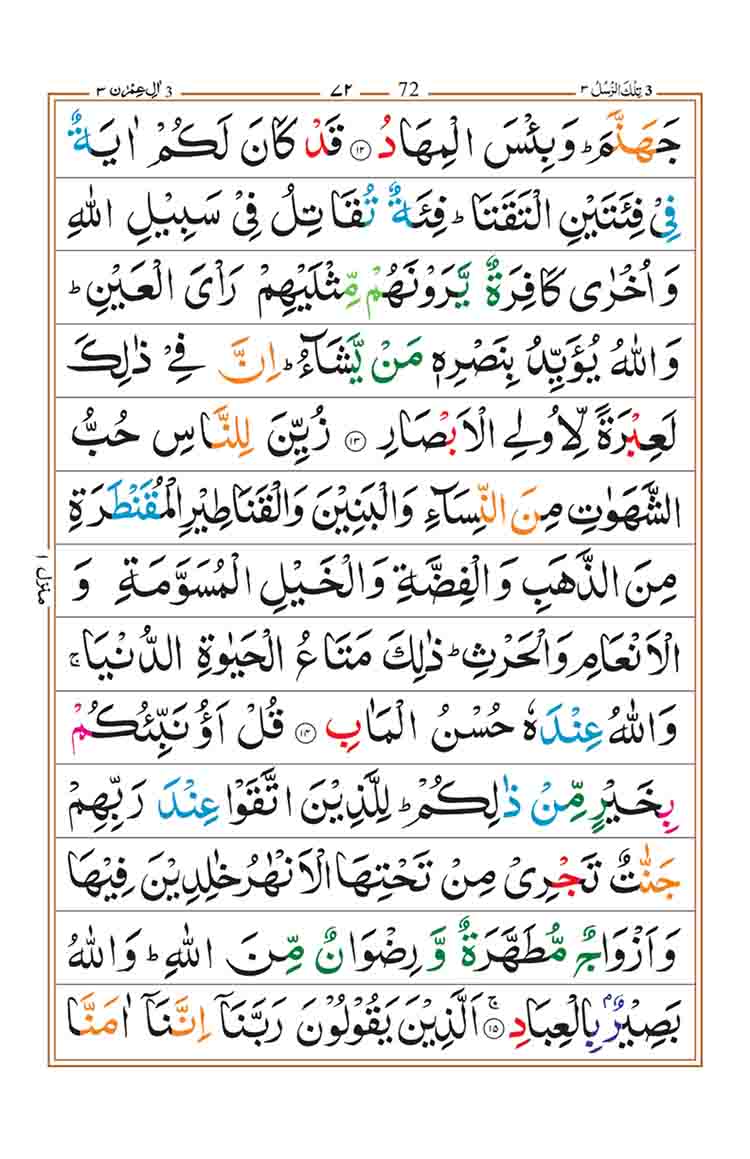 3 تِلْكَ الرُّسُلُ ٣ 72 ٧٢ 3 اٰلِ عِمْرٰن ٣
جَهَنَّمَ ؕ وَبِئْسَ الْمِهَادُ ۝۱۲ قَدْ كَانَ لَكُمْ اٰيَةٌ
فِيْ فِئَتَيْنِ الْتَقَتَا ؕ فِئَةٌ تُقَاتِلُ فِيْ سَبِيْلِ اللّٰهِ
وَاُخْرٰى كَافِرَةٌ يَّرَوْنَهُمْ مِّثْلَيْهِمْ رَاْيَ الْعَيْنِ ؕ
وَاللّٰهُ يُؤَيِّدُ بِنَصْرِهٖ مَنْ يَّشَآءُ ؕ اِنَّ فِيْ ذٰلِكَ
لَعِبْرَةً لِّاُولِي الْاَبْصَارِ ۝۱۳ زُيِّنَ لِلنَّاسِ حُبُّ
الشَّهَوٰتِ مِنَ النِّسَآءِ وَالْبَنِيْنَ وَالْقَنَاطِيْرِ الْمُقَنْطَرَةِ
مِنَ الذَّهَبِ وَالْفِضَّةِ وَالْخَيْلِ الْمُسَوَّمَةِ وَ
الْاَنْعَامِ وَالْحَرْثِ ؕ ذٰلِكَ مَتَاعُ الْحَيٰوةِ الدُّنْيَا ۚ
وَاللّٰهُ عِنْدَهٗ حُسْنُ الْمَاٰبِ ۝۱۴ قُلْ اَؤُنَبِّئُكُمْ
بِخَيْرٍ مِّنْ ذٰلِكُمْ ؕ لِلَّذِيْنَ اتَّقَوْا عِنْدَ رَبِّهِمْ
جَنّٰتٌ تَجْرِيْ مِنْ تَحْتِهَا الْاَنْهٰرُ خٰلِدِيْنَ فِيْهَا
وَاَزْوَاجٌ مُّطَهَّرَةٌ وَّرِضْوَانٌ مِّنَ اللّٰهِ ؕ وَاللّٰهُ
بَصِيْرٌۢ بِالْعِبَادِ ۚ۝۱۵ اَلَّذِيْنَ يَقُوْلُوْنَ رَبَّنَآ اِنَّنَآ اٰمَنَّا
منزل ١